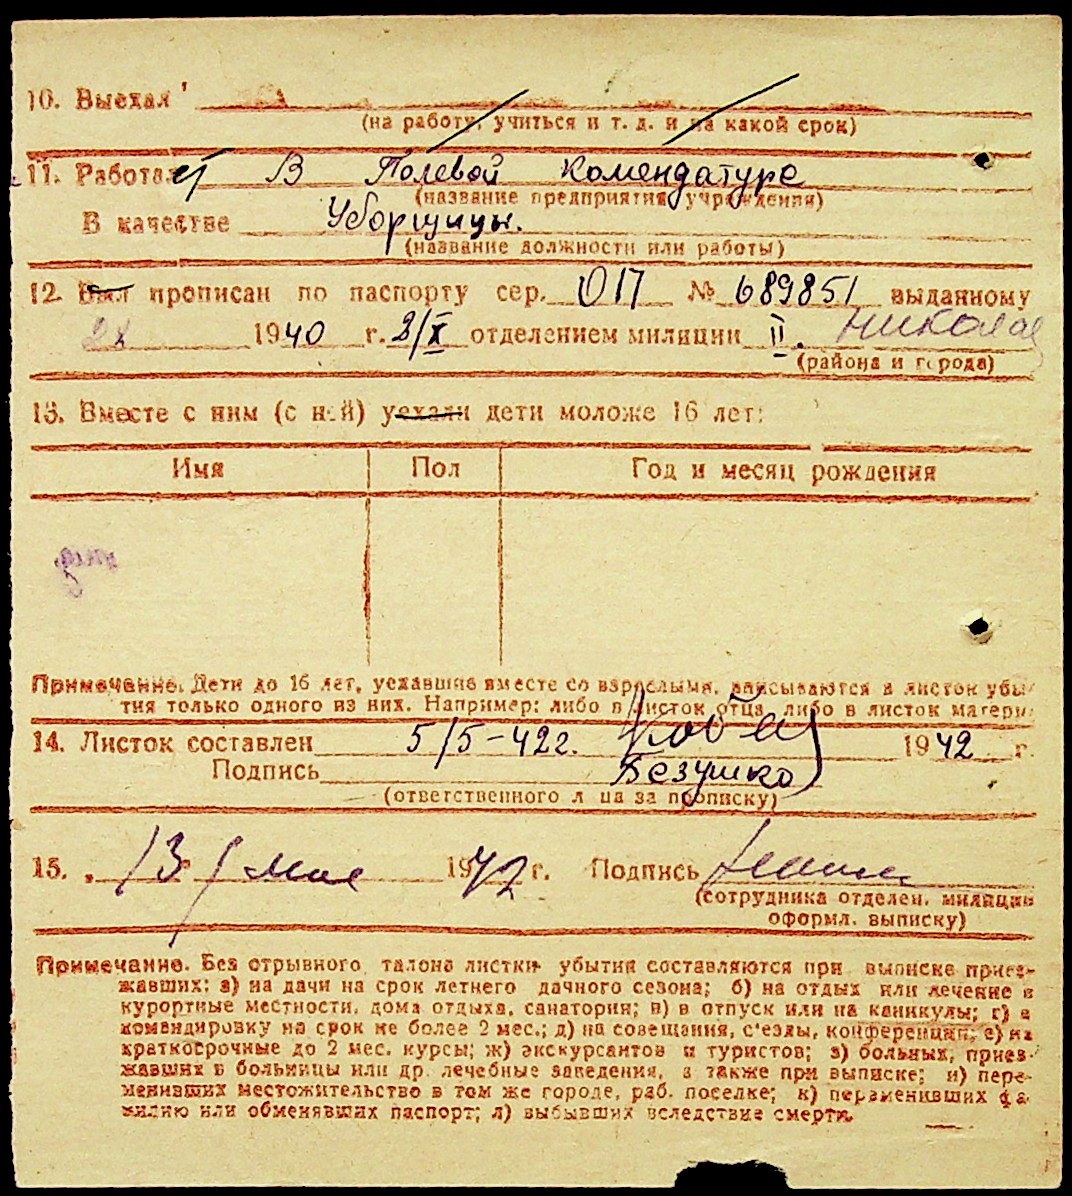 10. Выехал
(на работу, учиться и т. д. и на какой срок)
11. Работает В Полевой Комендатуре
(название предприятия учреждения)
В качестве Уборщицы.
(название должности или работы)
12. Был прописан по паспорту сер. № 689851 выданному
1940 г. 2/X отделением милиции II.
(района и города)
13. Вместе с ним (с ней) уехали дети моложе 16 лет:
Имя Пол Год и месяц рождения
Примечание. Дети до 16 лет, уехавшие вместе со взрослыми, вписываются в листок убы-
тия только одного из них. Например: либо в листок отца, либо в листок матери.
14. Листок составлен 5/5-42г. 1942 г.
Подпись Безушко
(ответственного лица за прописку)
15. 13 мая 1942 г. Подпись
(сотрудника отделен. милиции
оформл. выписку)
Примечание. Без отрывного талона листки убытия составляются при выписке приез-
жавших: а) на дачи на срок летнего дачного сезона; б) на отдых или лечение в
курортные местности, дома отдыха, санатории; в) в отпуск или на каникулы; г) в
командировку на срок не более 2 мес.; д) на совещания, с'езды, конференции; е) на
краткосрочные до 2 мес. курсы; ж) экскурсантов и туристов; з) больных, приез-
жавших в больницы или др. лечебные заведения, а также при выписке; и) пере-
менивших местожительство в том же городе, раб. поселке; к) переменивших фа-
милию или обменявших паспорт; л) выбывших вследствие смерти.